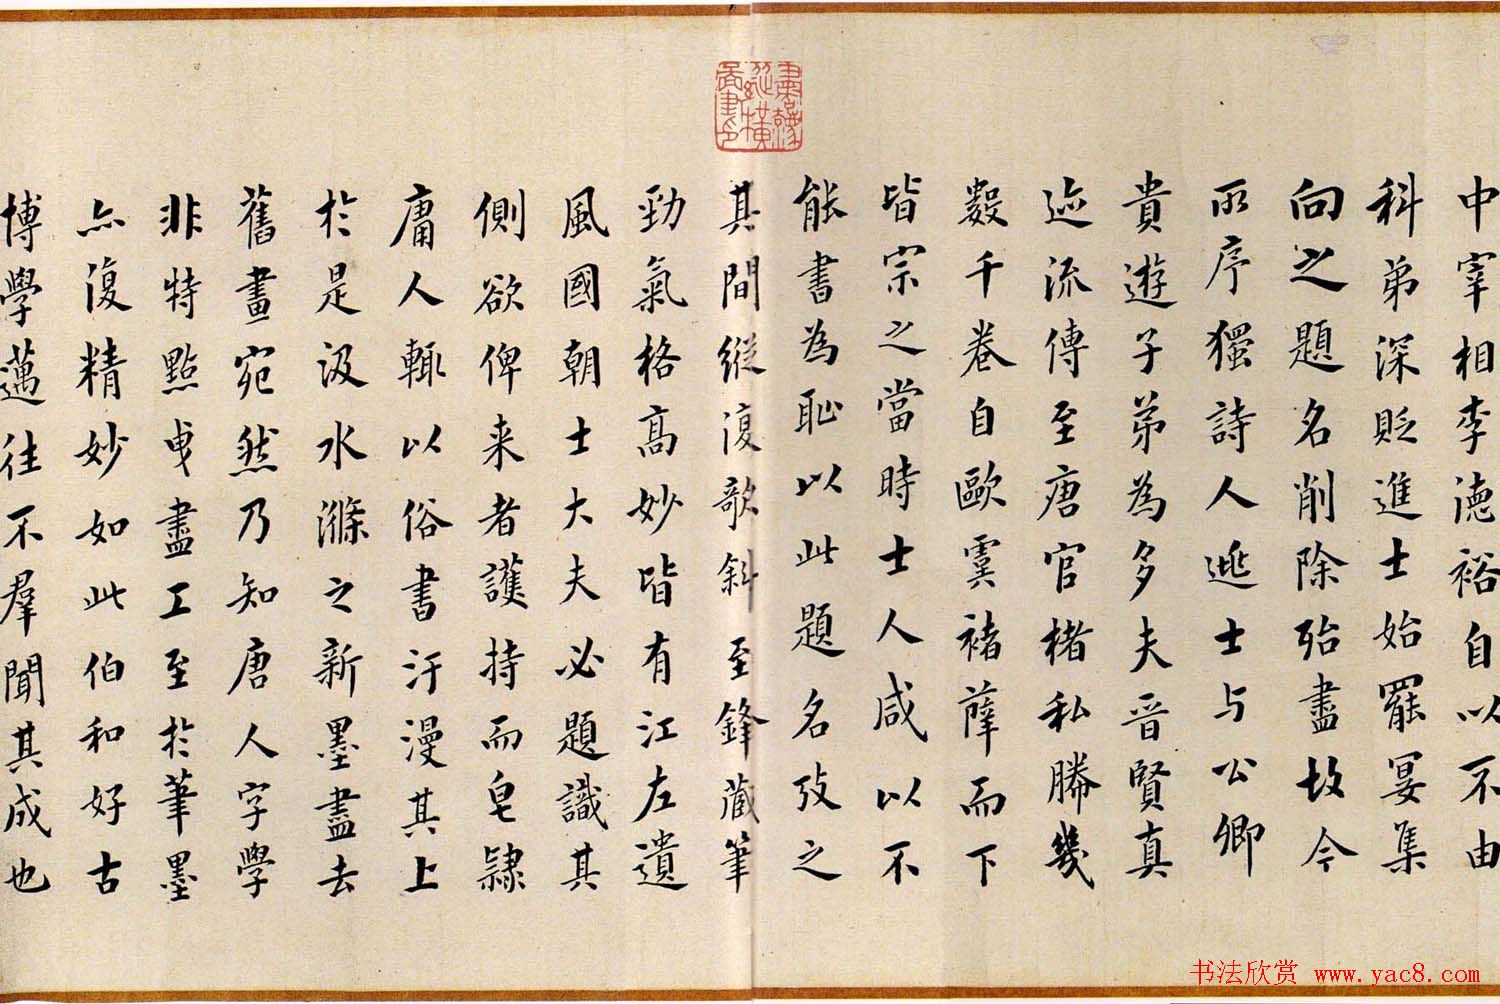 中宰相李德裕自以不由
科弟深貶進士始罷宴集
向之題名削除殆盡故今
所序獨詩人逃士与公卿
貴遊子弟為多夫晋賢真
迹流傳至唐官楮私勝幾
數千卷自歐虞褚薛而下
皆宗之當時士人咸以不
能書為恥以此題名攷之
其間縱復欹斜至鋒藏筆
勁氣格高妙皆有江左遺
風國朝士大夫必題識其
側欲俾来者護持而皂隷
庸人輙以俗書汙漫其上
於是汲水滌之新墨盡去
舊畫宛然乃知唐人字學
非特點曳盡工至於筆墨
亦復精妙如此伯和好古
博學邁往不羣聞其成也
书法欣赏 www.yac8.com